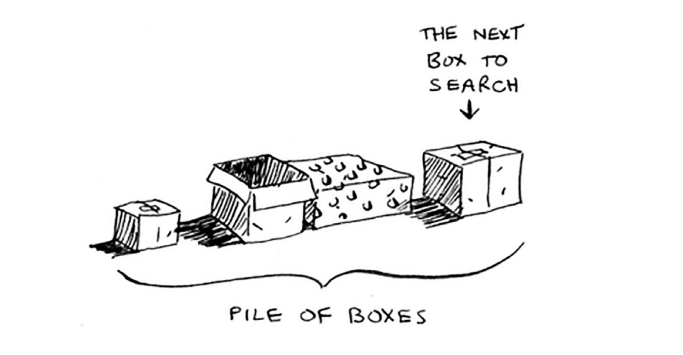 THE NEXT
BOX TO
SEARCH
PILE OF BOXES